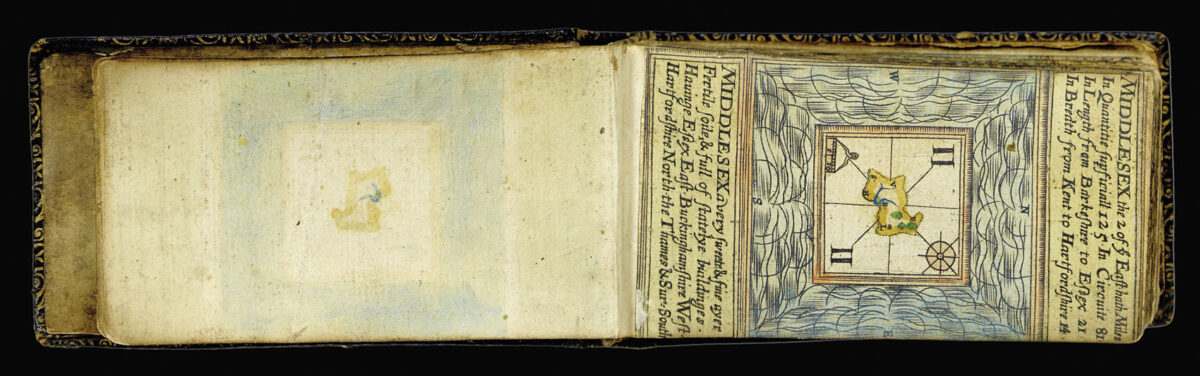 MIDDLESEX the 2 of yͤ Eaſt hath Miles
In Quantitie ſupficiall 125 In Circuite 81
In Length from Barkeſhire to Eſſex 21.
In Bredth from Kent to Hartfordſhire 14.
N
II
W
E
II
S
MIDDLESEX a very ſweete & fine ayre
Fertile ſoile & full of ſtatelye buildinges
Hauinge Eſſex Eaſt Buckinghamſhire Weſt.
Hartfordſhire North the Thames & Sur: South